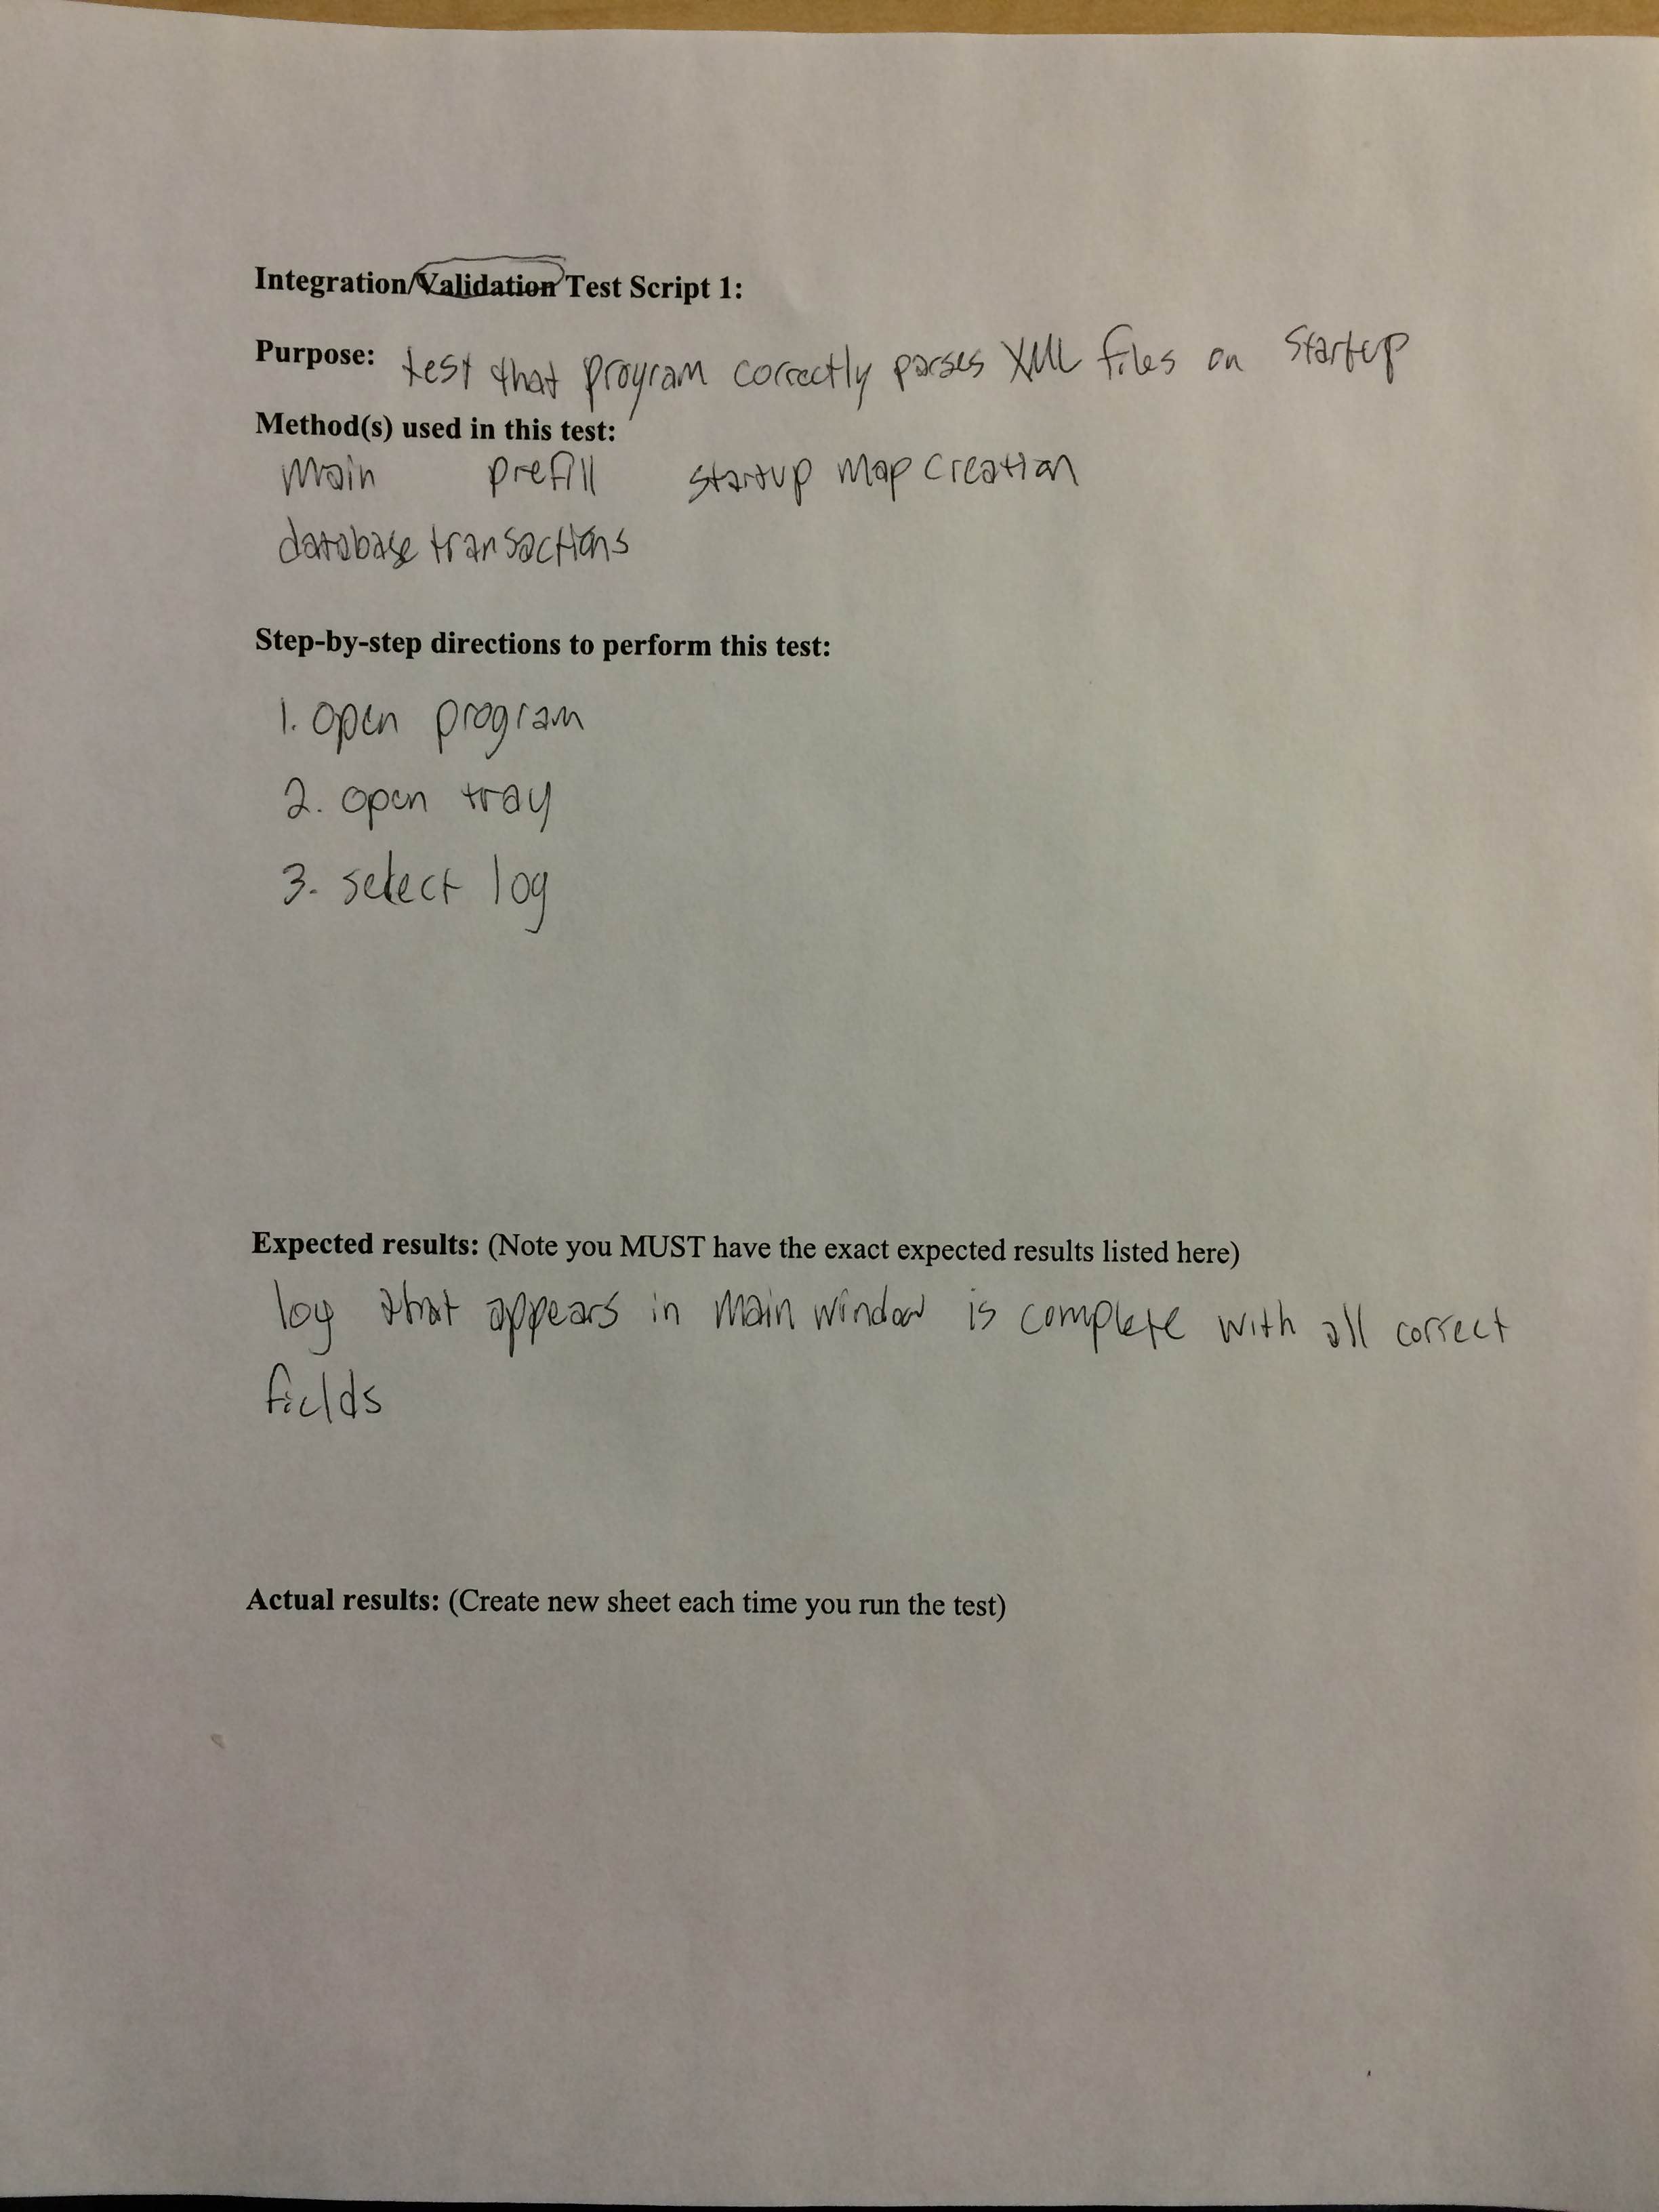 Integration/Validation Test Script 1:
Purpose: test that program correctly parses XML files on startup
Method(s) used in this test:
main prefill startup map creation
database transactions
Step-by-step directions to perform this test:
1. open program
2. open tray
3. select log
Expected results: (Note you MUST have the exact expected results listed here)
log that appears in main window is complete with all correct
fields
Actual results: (Create new sheet each time you run the test)